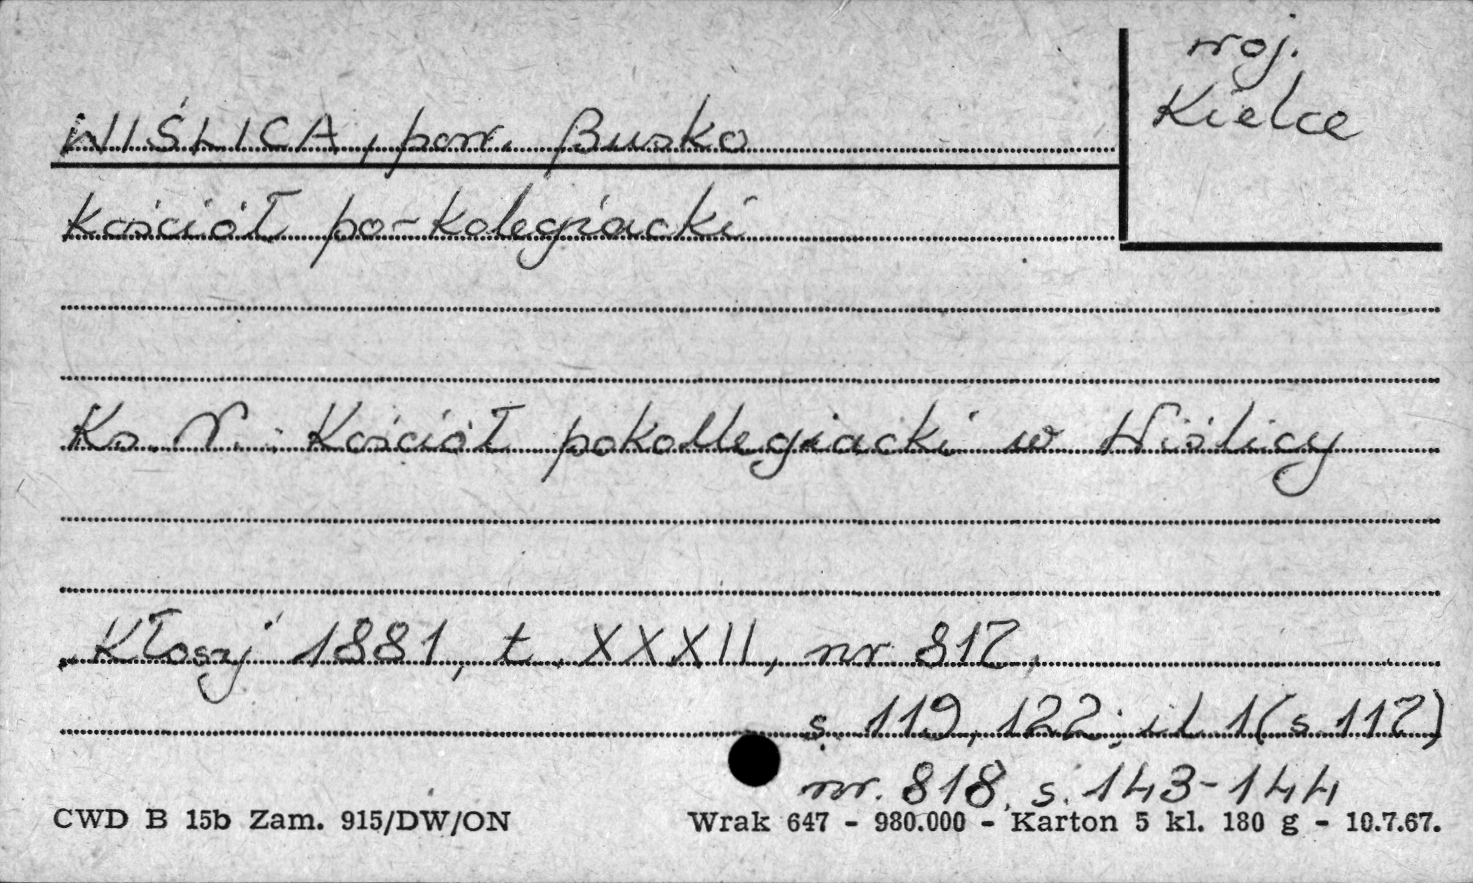 woj.
Kielce
WIŚLICA, pow. Busko
Kościół po-kolegiacki
Ks. N.: Kościół pokollegiacki w Wiślicy
„Kłosy” 1881, t. XXXII, nr 817,
s. 119, 122; il. 1 (s. 117)
nr. 818, s. 143-144
CWD B 15b Zam. 915/DW/ON
Wrak 647 - 980.000 - Karton 5 kl. 180 g - 10.7.67.